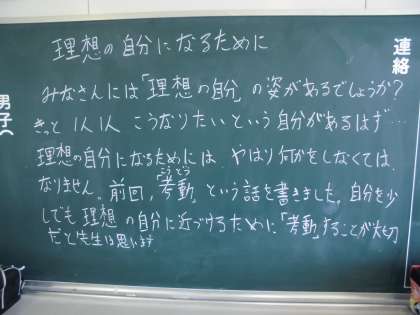 理想の自分になるために
みなさんには「理想の自分」の姿があるでしょうか?
きっと 1人1人 こうなりたいという自分があるはず…
理想の自分になるためには、やはり何かをしなくては
なりません。前回、「考動」という話を書きました。自分を少
こうどう
しでも 理想の自分に近づけるために「考動」することが大切
だと先生は思います
連絡
男子（